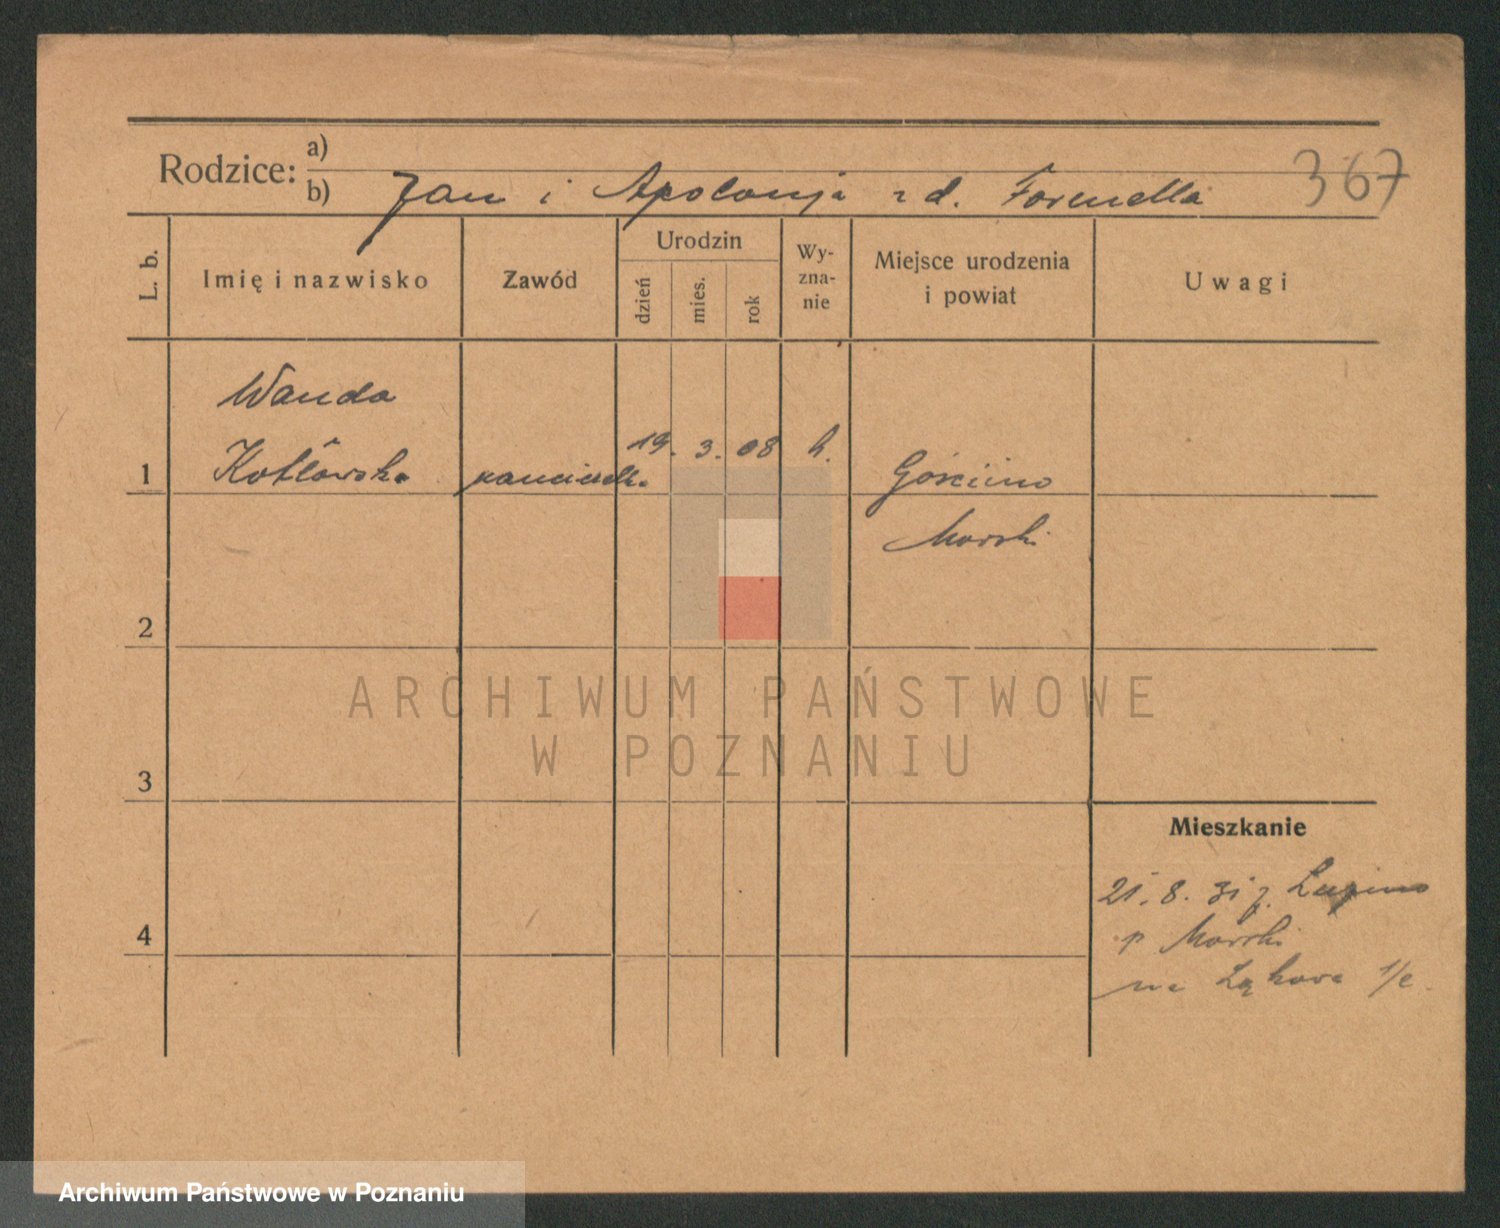 367
Rodzice: a)
b) Jan i Apolonja zd. Formella
L. b.
Imię i nazwisko
Zawód
Urodzin
dzień
mies.
rok
Wy-
zna-
nie
Miejsce urodzenia
i powiat
Uwagi
Wanda
1 Kotłowska 19. 3. 08 Gościno
Morski
2
3
4
Mieszkanie
21. 8. 31 z
p Morski
na Łąkowa
ARCHIWUM PAŃSTWOWE
W POZNANIU
Archiwum Państwowe w Poznaniu